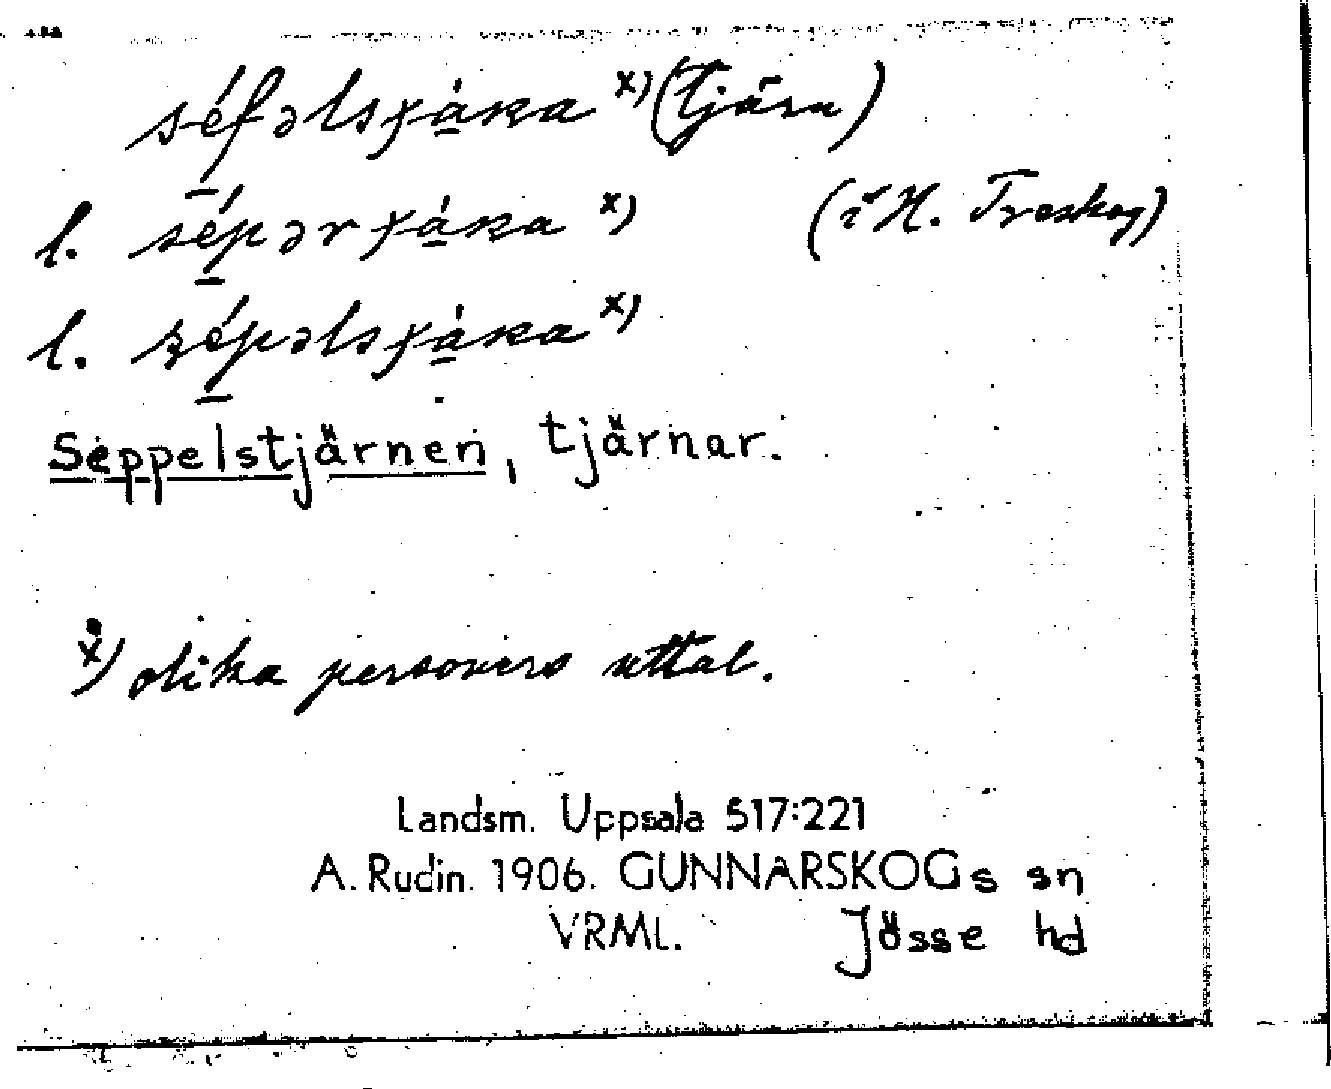 séfəlsɟána x) (tjärn)
l. sépərɟána x) (i N. Treskog)
l. sépəlsɟána x)
Seppelstjärnen, tjärnar.
x) olika personers uttal.
Landsm. Uppsala 517:221
A. Rudin. 1906. GUNNARSKOGs sn
VRML. Jösse hd